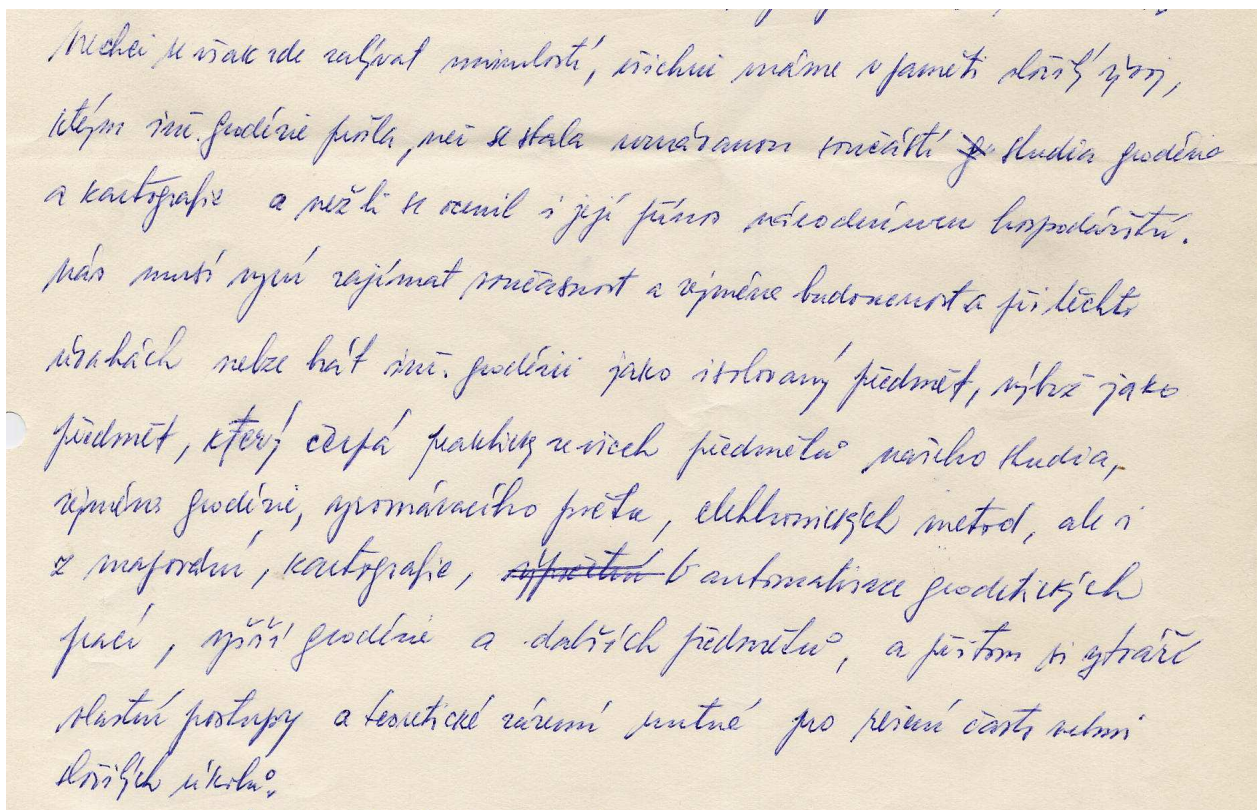 Nechci se však zde zabývat minulostí, všichni máme v paměti složitý vývoj,
kterým inž. geodézie prošla, než se stala uznávanou součástí studia geodézie
a kartografie a než li se ocenil i její přínos národnímu hospodářství.
Nás musí nyní zajímat současnost a zejména budoucnost a při těchto
úvahách nelze brát inž. geodézii jako isolovaný předmět, nýbrž jako
předmět, který čerpá prakticky ze všech předmětů našeho studia,
zejména geodézie, vyrovnávacího počtu, elektronických metod, ale i
z mapování, kartografie, výpočetní automatizace geodetických
prací, vyšší geodézie a dalších předmětů, a přitom si vytváří
vlastní postupy a teoretické zázemí nutné pro řešení často velmi
složitých úkolů.